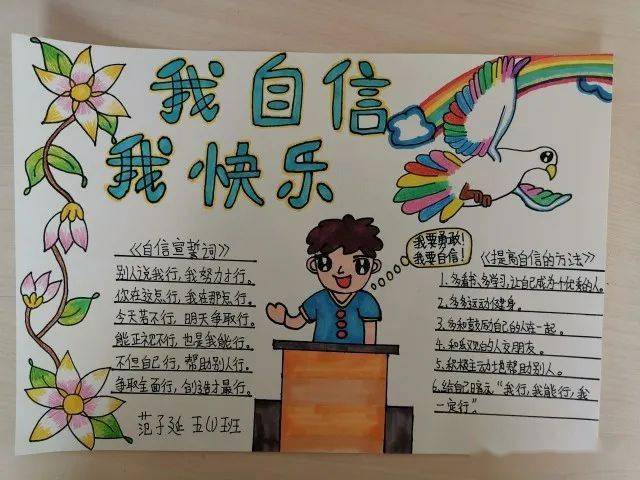 我自信
我快乐
《自信宣誓词》
别人说我行，我努力才行。
你在这点行，我在那点行。
今天若不行，明天争取行。
能正视不行，也是我能行。
不但自己行，帮助别人行。
争取全面行，创造才最行。
范子延 五(1)班
我要勇敢！
我要自信！
《提高自信的方法》
1.多看书、多学习，让自己成为十优秀的人。
2.多多运动健身。
3.多和鼓励自己的人在一起。
4.和乐观的人交朋友。
5.积极主动地帮助别人。
6.给自己暗示“我行，我能行，我
一定行”。